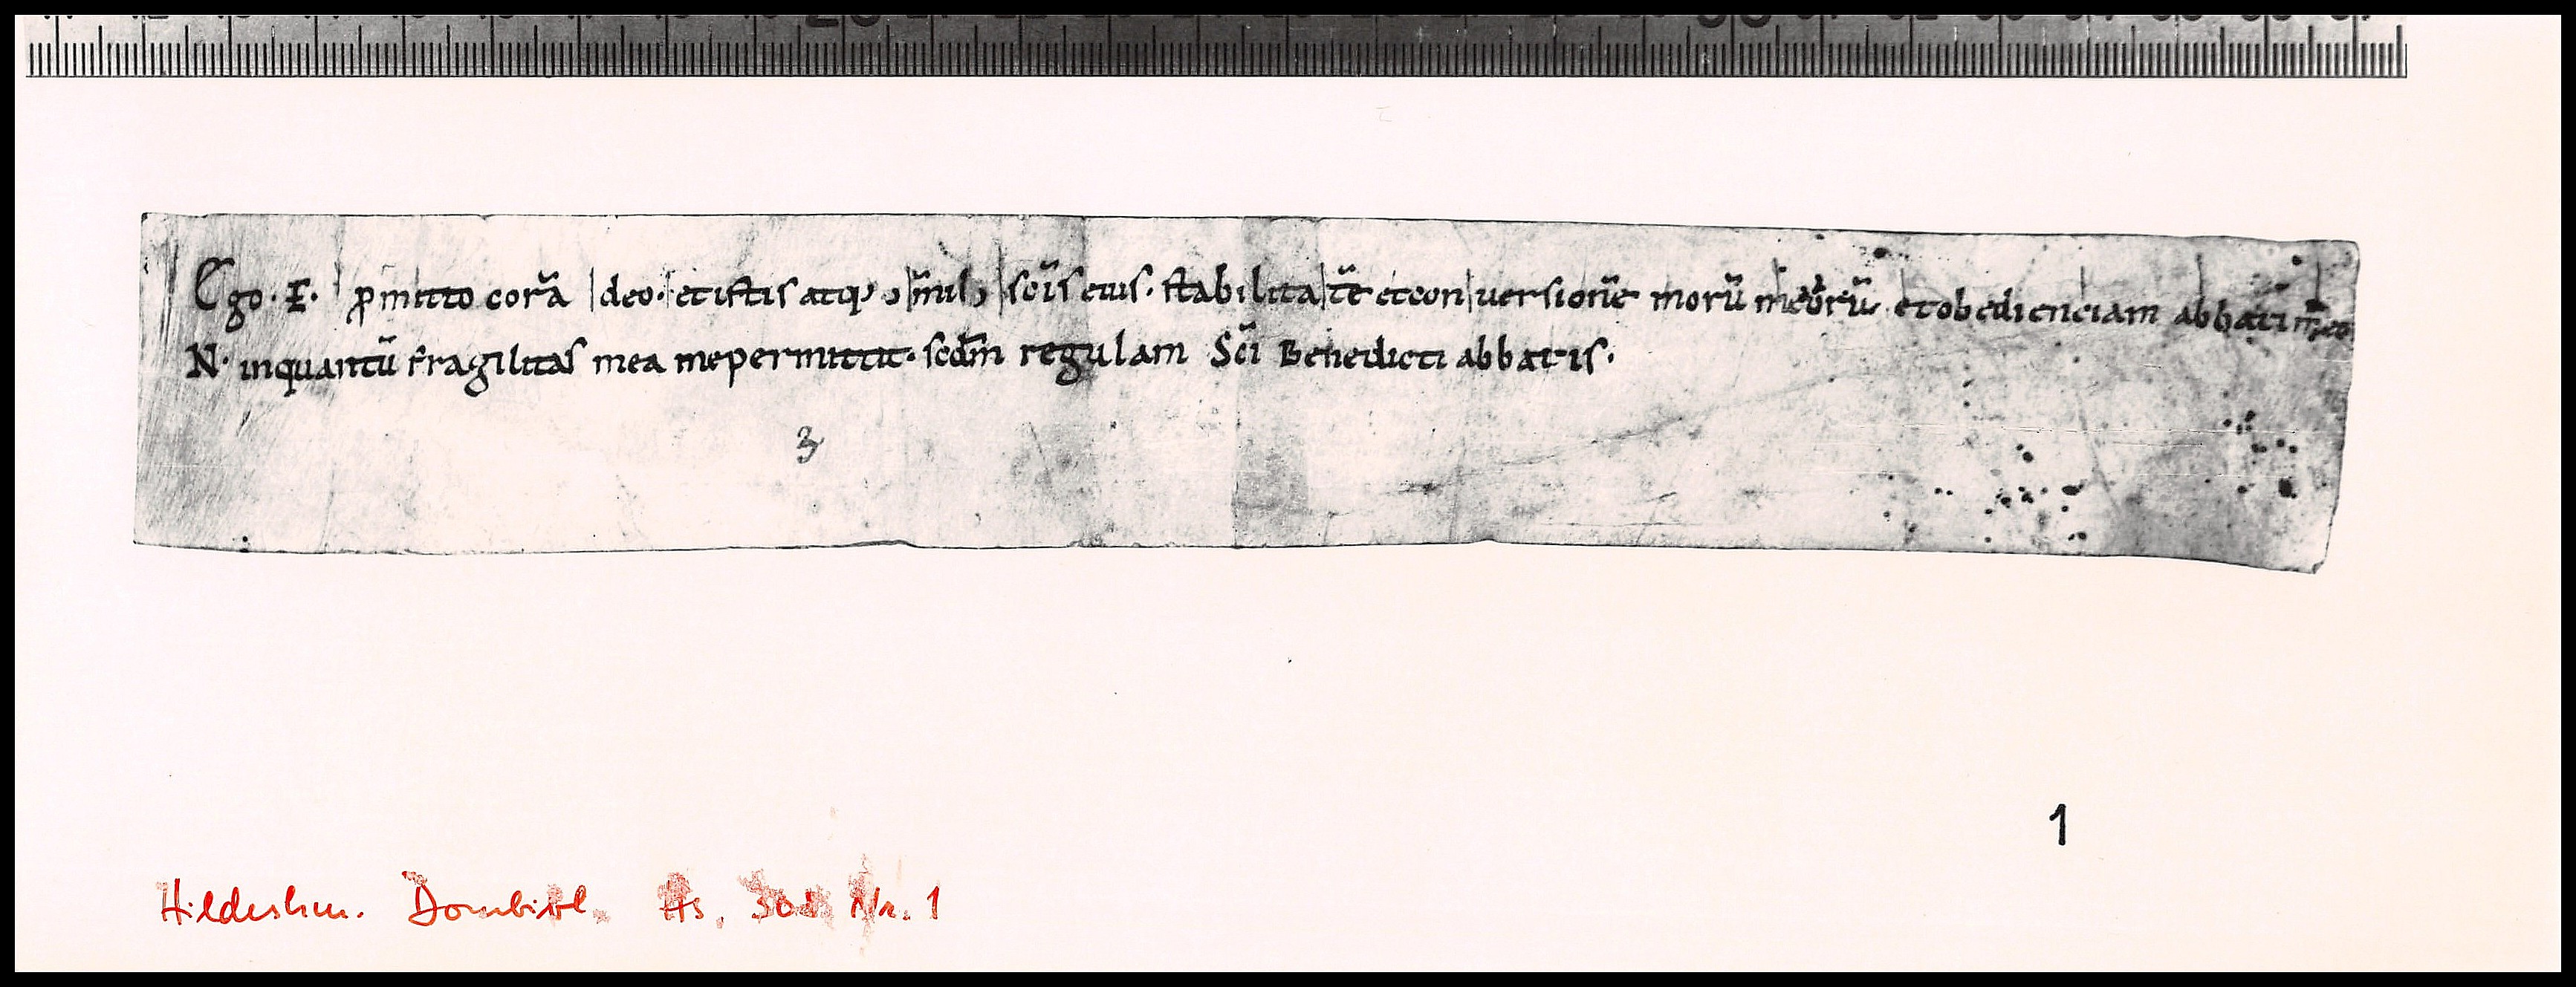 Ego · E · ꝓmitto corā deo · et istis atqꝫ om̄ibꝫ sc̄is eius · stabilitatē et conuersionē morū meorū et obedienciam abbati meo
N · inquantū fragilitas mea me permittit · scdm̄ regulam Sc̄i Benedicti abbatis ·
3
1
Hildesheim. Dombibl. Hs. Nr. 1